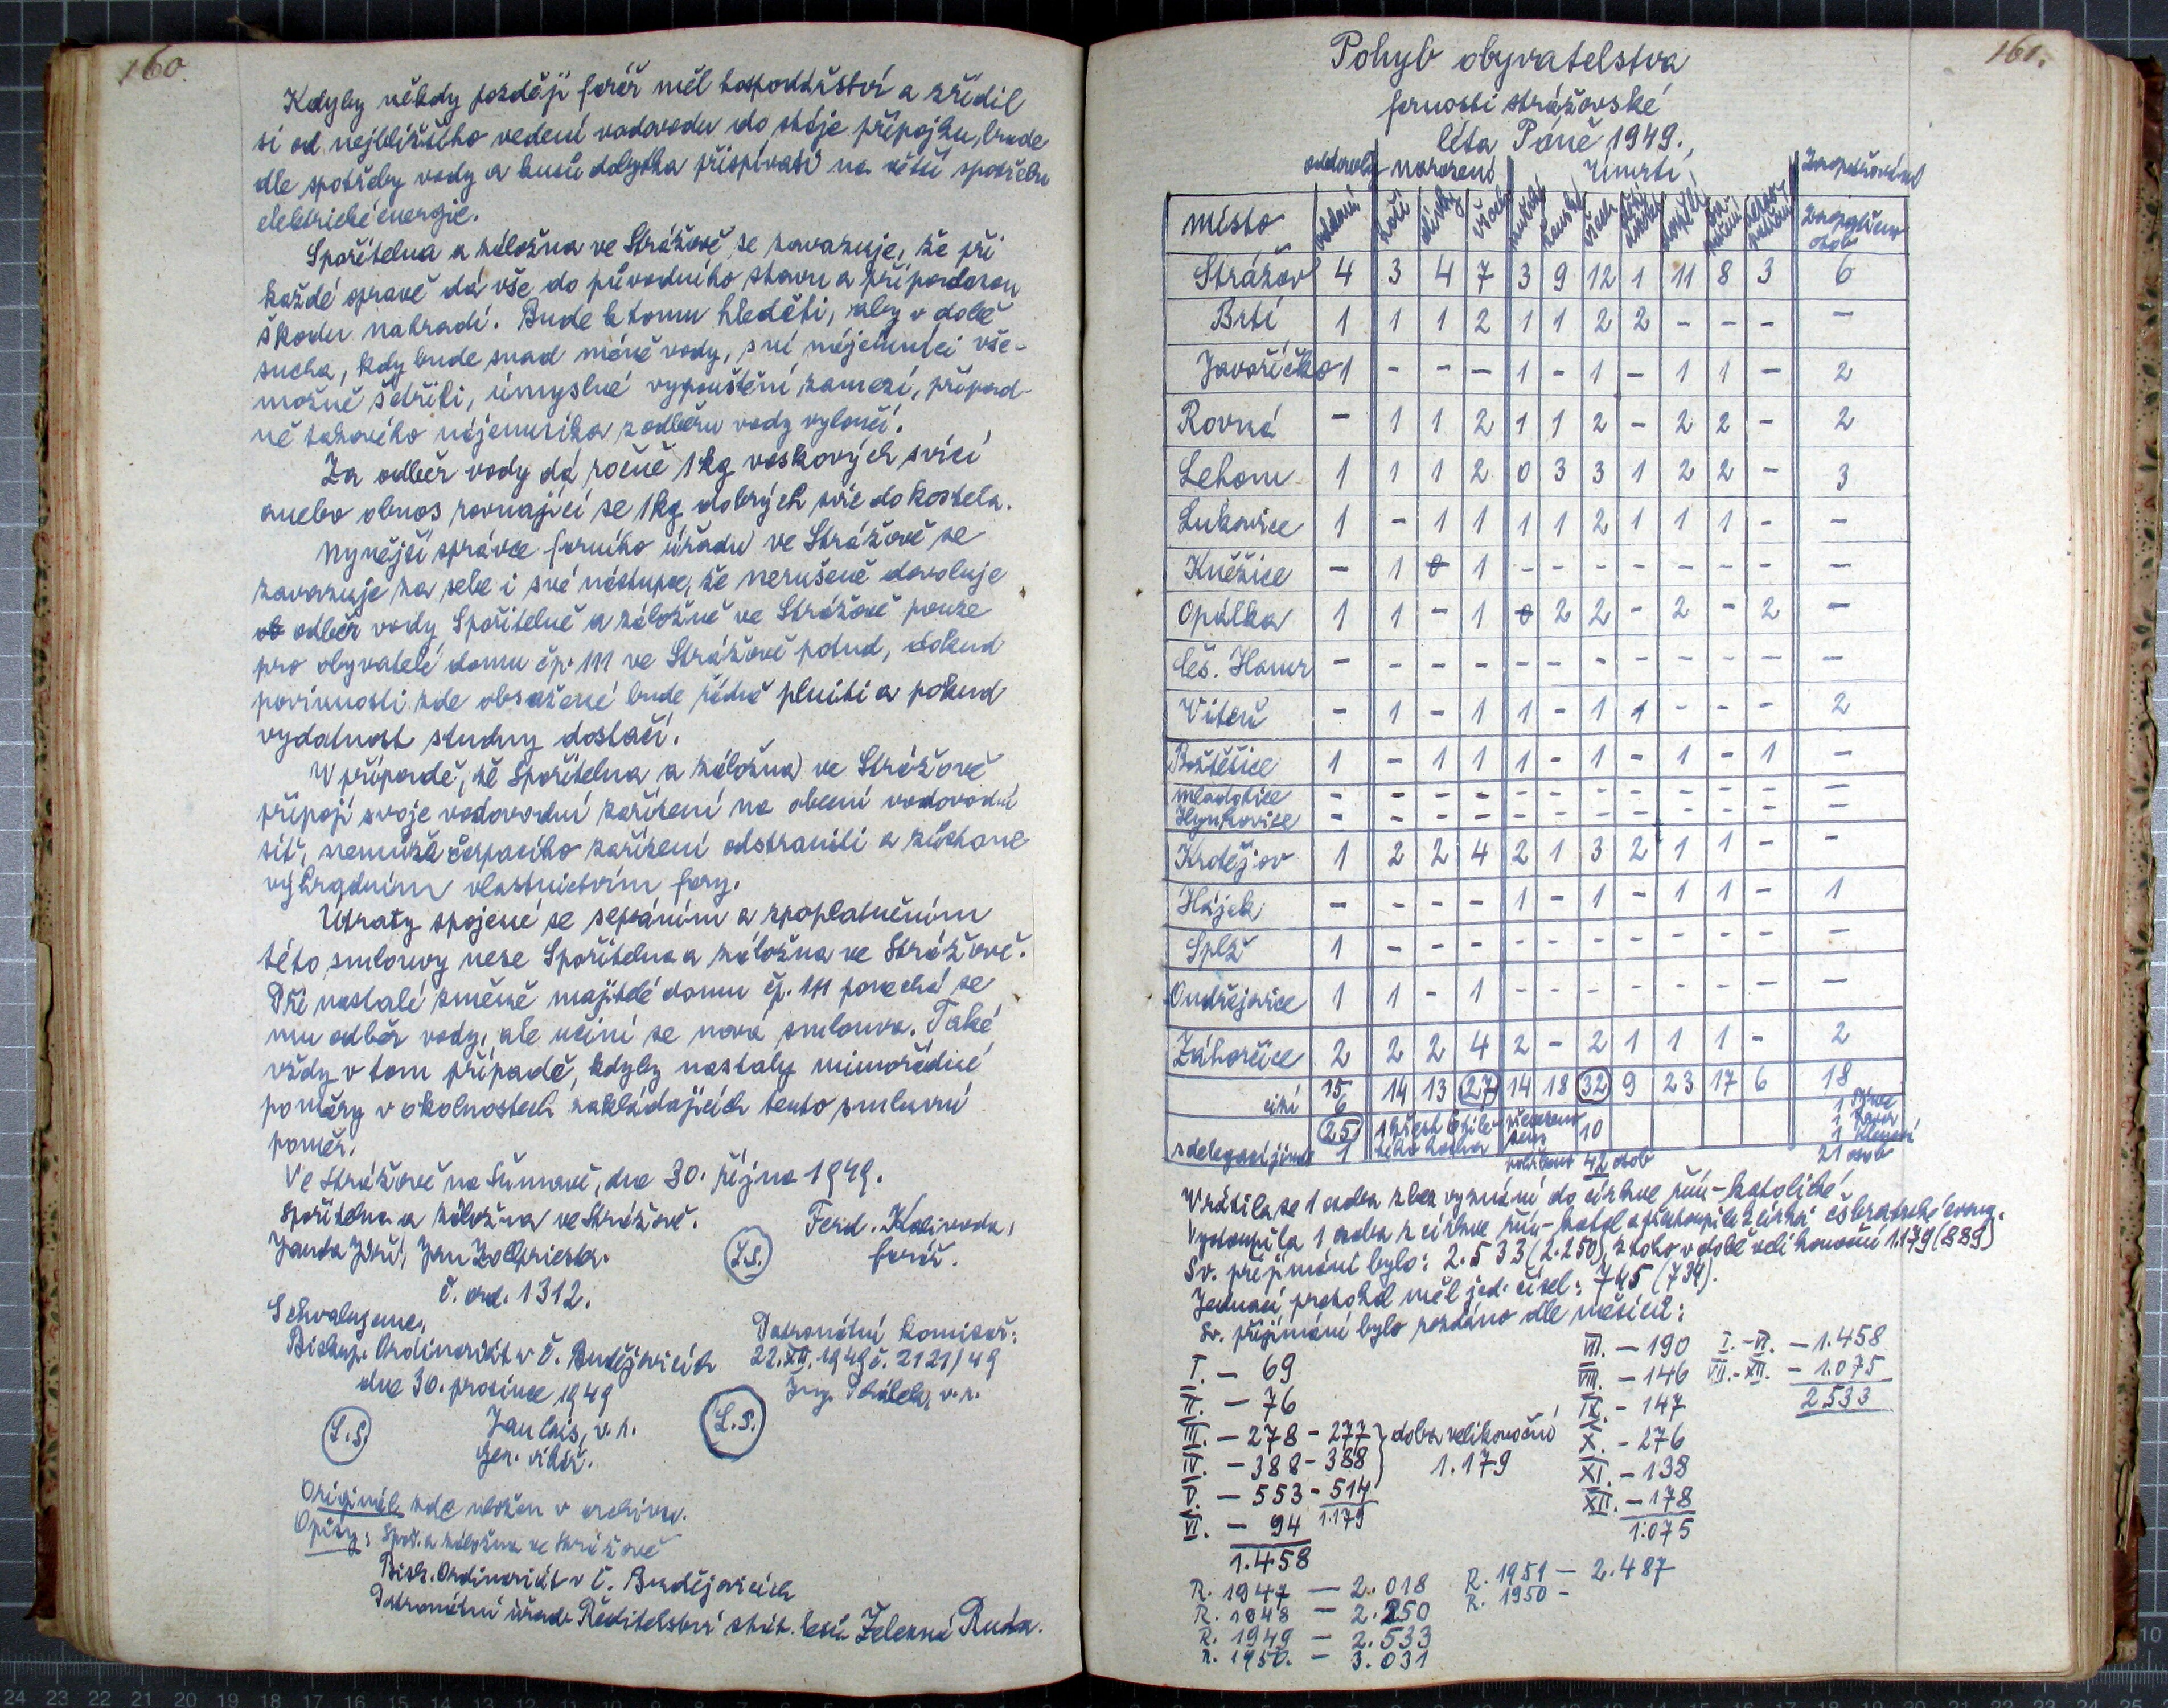 160.
Kdyby někdy později farář měl hospodářství a zřídil
si od nejbližšího vedení vodovodu do stáje přípojku, bude
dle spotřeby vody a kusů dobytka přispívati na větší spotřebu
elektrické energie.
Spořitelna a záložna ve Strážově se zavazuje, že při
každé opravě dá vše do původního stavu a případnou
škodu nahradí. Bude k tomu hleděti, aby v době
sucha, kdy bude snad méně vody, svi nájemníci vše-
možně šetřili, úmyslné vypouštění zamezí, případ-
ně takového nájemníka z odběru vody vyloučí.
Za odběr vody dá ročně 1 kg voskových svící
anebo obnos rovnající se 1 kg dobrých svic do kostela.
Nynější správce farního úřadu ve Strážově se
zavazuje za sebe i své nástupce, že nerušeně dovoluje
odběr vody Spořitelně a záložně ve Strážově pouze
pro obyvatelé domu čp. 111 ve Strážově potud, dokud
povinnosti zde obsažené bude řádně plniti a pokud
vydatnost studny dostačí.
V případě, že Spořitelna a záložna ve Strážově
připojí svoje vodovodní zařízení na obecní vodovodní
síť, nemůže čerpacího zařízení odstraniti a zůstane
výhradním vlastnictvím fary.
Útraty spojené se sepsáním a zpoplatněním
této smlouvy nese Spořitelna a záložna ve Strážově.
Při nastalé změně majitele domu čp. 111 ponechá se
mu odběr vody, ale učiní se nová smlouva. Také
vždy v tom případě, kdyby nastaly mimořádné
poměry v okolnostech zakládajících tento smluvní
poměr.
Ve Strážově na Šumavě, dne 30. října 1949.
Spořitelna a záložna ve Strážově. Ferd. Kalivoda,
Janda Jiří, Jan L.S. farář.
Č. ord. 1312.
Schvalujeme, Patronátní komisař:
Biskup. Ordinariát v Č. Budějovicích 22.XII.1949 č. 2121/49
dne 30. prosince 1949 Ing. v.r.
L.S. Jan Cais, v.r. L.S.
Gen. vikář.
Originál zde uložen v archivu.
Opisy: Spoř. a záložna ve Strážově
Bisk. Ordinariát v Č. Budějovicích
Patronátní úřad Ředitelství stát. lesů Železná Ruda.
161.
Pohyb obyvatelstva
farnosti strážovské
léta Páně 1949.
oddavky narození Úmrtí Zaopatřování
místo oddaní hoši dívky všech mužské ženské všech děti dospělí zaopatřeno osob
Strážov 4 3 4 7 3 9 12 1 11 8 3 6
Brtí 1 1 1 2 1 1 2 2 - - - -
Javoříčko 1 - - - 1 - 1 - 1 1 - 2
Rovná - 1 1 2 1 1 2 - 2 2 - 2
Lehom 1 1 1 2 0 3 3 1 2 2 - 3
Lukavice 1 - 1 1 1 1 2 1 1 1 - -
Kněžice - 1 0 1 - - - - - - - -
Opálka 1 1 - 1 0 2 2 - 2 - 2 -
Čes. Hamr - - - - - - - - - - - -
Viteň - 1 - 1 1 - 1 1 - - - 2
Božtěšice 1 - 1 1 1 - 1 - 1 - 1 -
Mladotice - - - - - - - - - - - -
Hynkovice - - - - - - - - - - - -
Krotějov 1 2 2 4 2 1 3 2 1 1 - -
Hájek - - - - 1 - 1 - 1 1 - 1
Splž 1 - - - - - - - - - - -
Ondřejovice 1 1 - 1 - - - - - - - -
Záhorčice 2 2 2 4 2 - 2 1 1 1 - 2
15 14 13 27 14 18 32 9 23 17 6 18
cizí 6
25 10
s delegací jinde 1
pohřbeno 42 osob 21 osob
Vrátila se 1 osoba z bez vyznání do církve řím-katolické
Vystoupila 1 osoba z církve řím-katol a přestoupila k církvi českobratrské evang.
Sv. přijímání bylo: 2.533 (2.250), z toho v době velikonoční 1.179 (889)
Jednací protokol měl jed. čísel: 745 (734).
Sv. přijímání bylo podáno dle měsíců:
I. - 69
II. - 76
III. - 278 - 277
IV. - 388 - 388
V. - 553 - 514
VI. - 94 1.179
1.458
doba velikonoční
1.179
VII. - 190
VIII. - 146
IX. - 147
X. - 276
XI. - 138
XII. - 178
1.075
I.-VI. - 1.458
VII.-XII. - 1.075
2.533
R. 1947 - 2.018
R. 1948 - 2.250
R. 1949 - 2.533
R. 1950. - 3.031
R. 1951 - 2.487
R. 1950 -